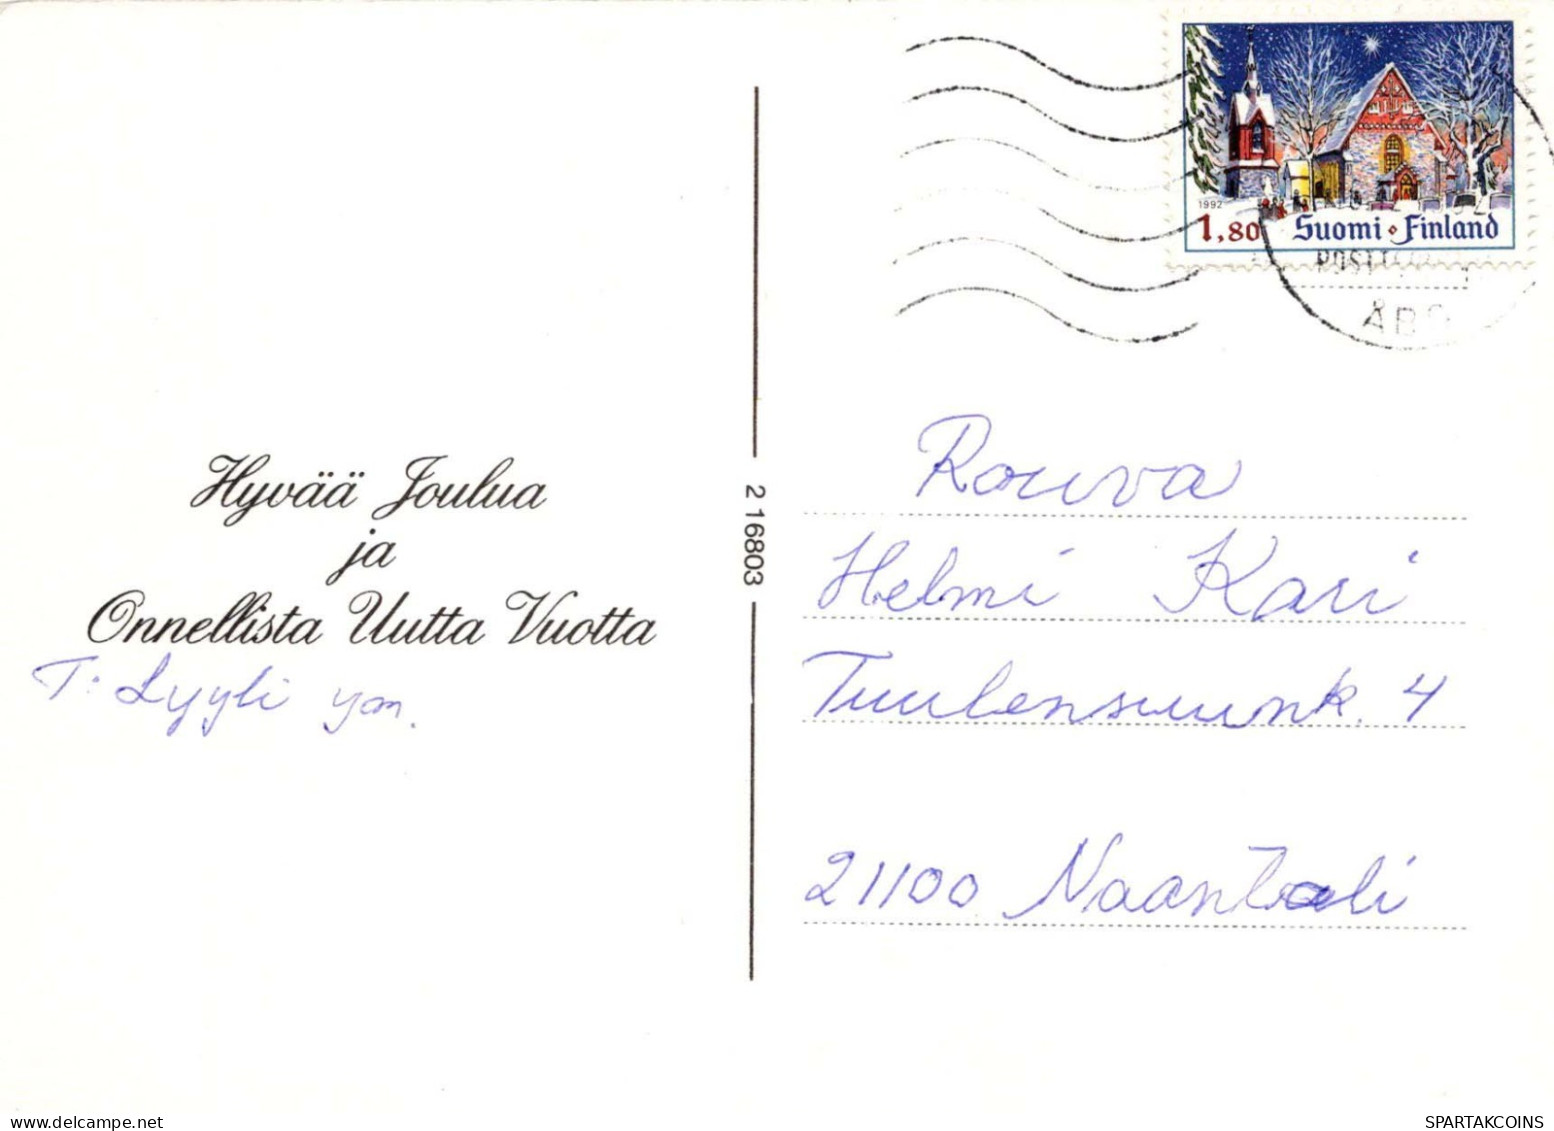 Hyvää Joulua
ja
Onnellista Uutta Vuotta
T: Lyyli ym.
2 16803
1992
1,80 Suomi • Finland
ÅBO
Rouva
Helmi Kari
Tuulensuunk. 4
21100 Naantali
delcampe.net
SPARTAKCOINS